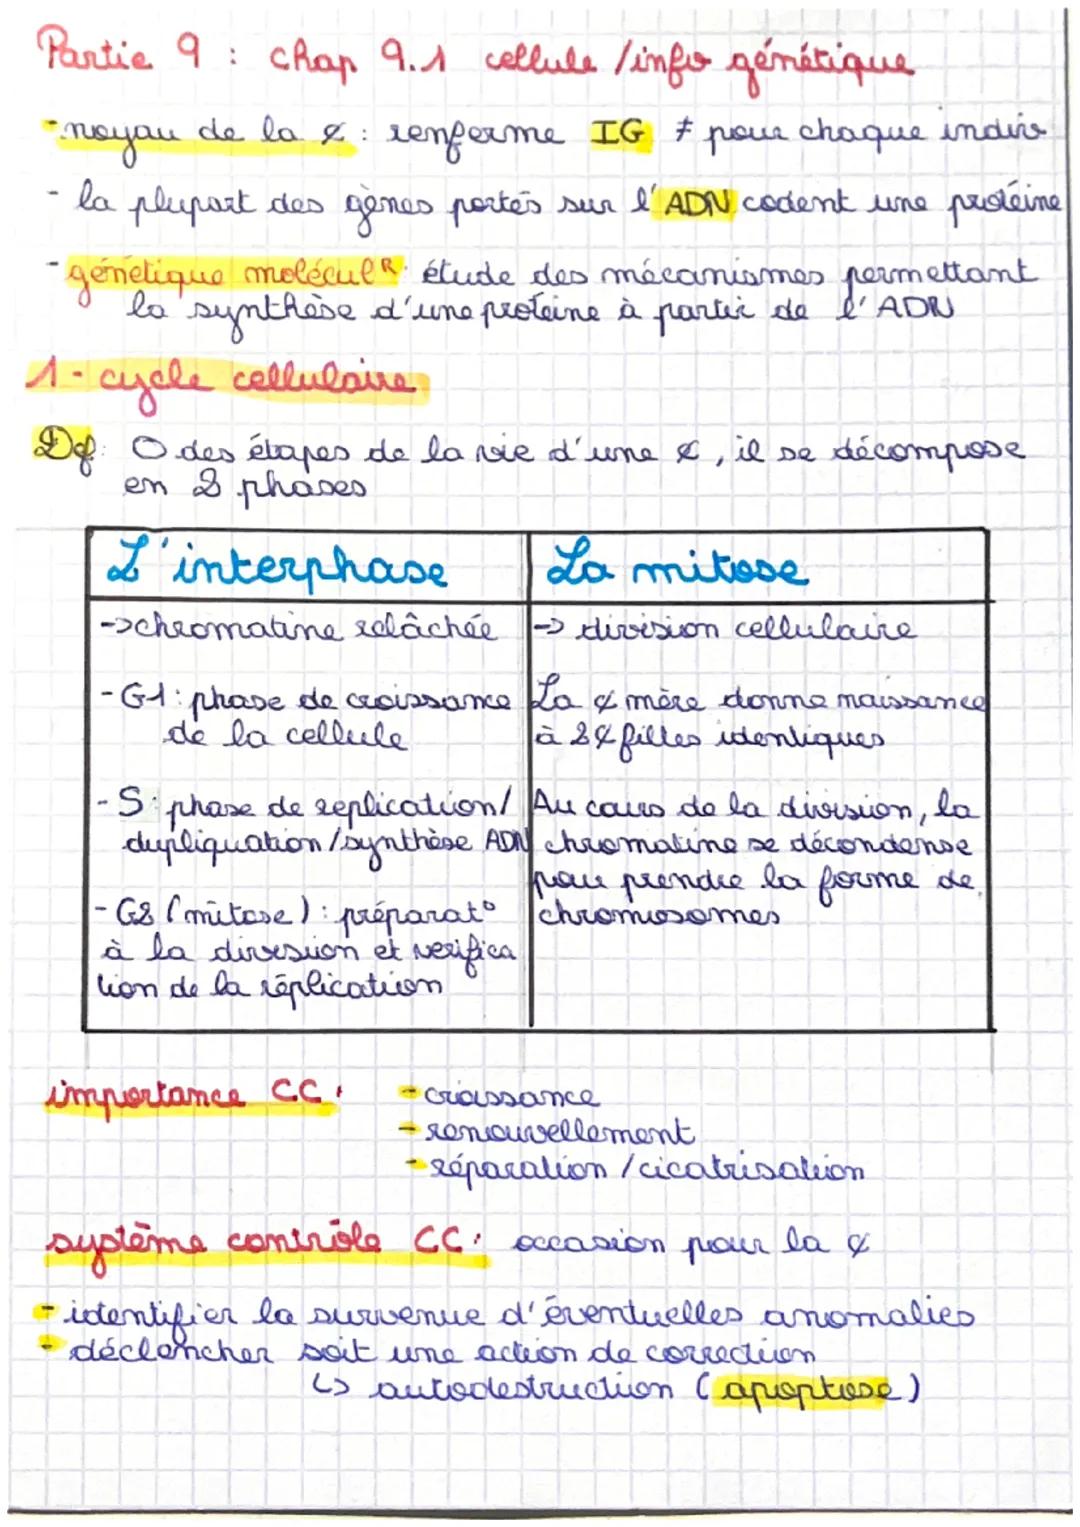 Partie 9 : chap 9.1 cellule /info génétique
- noyau de la ¢ : renferme IG ≠ pour chaque indiv
- la plupart des gènes portés sur l'ADN codent une protéine
- génétique molécul R : étude des mécanismes permettant
la synthèse d'une protéine à partir de l'ADN
1 - cycle cellulaire
Df : O des étapes de la vie d'une ¢, il se décompose
en 2 phases
L'interphase
-> chromatine relâchée
- G1 : phase de croissance
de la cellule
- S : phase de replication/
dupliquation/synthèse ADN
- G2 (mitose) : préparat°
à la division et verifica
tion de la réplication
La mitose
-> division cellulaire
La ¢ mère donne naissance
à 2 ¢ filles identiques
Au cours de la division, la
chromatine se décondense
pour prendre la forme de
chromosomes
importance CC :
- croissance
- renouvellement
- réparation /cicatrisation
système contrôle CC : occasion pour la ¢
- identifier la survenue d'éventuelles anomalies
- déclencher soit une action de correction
↳ autodestruction (apoptose)